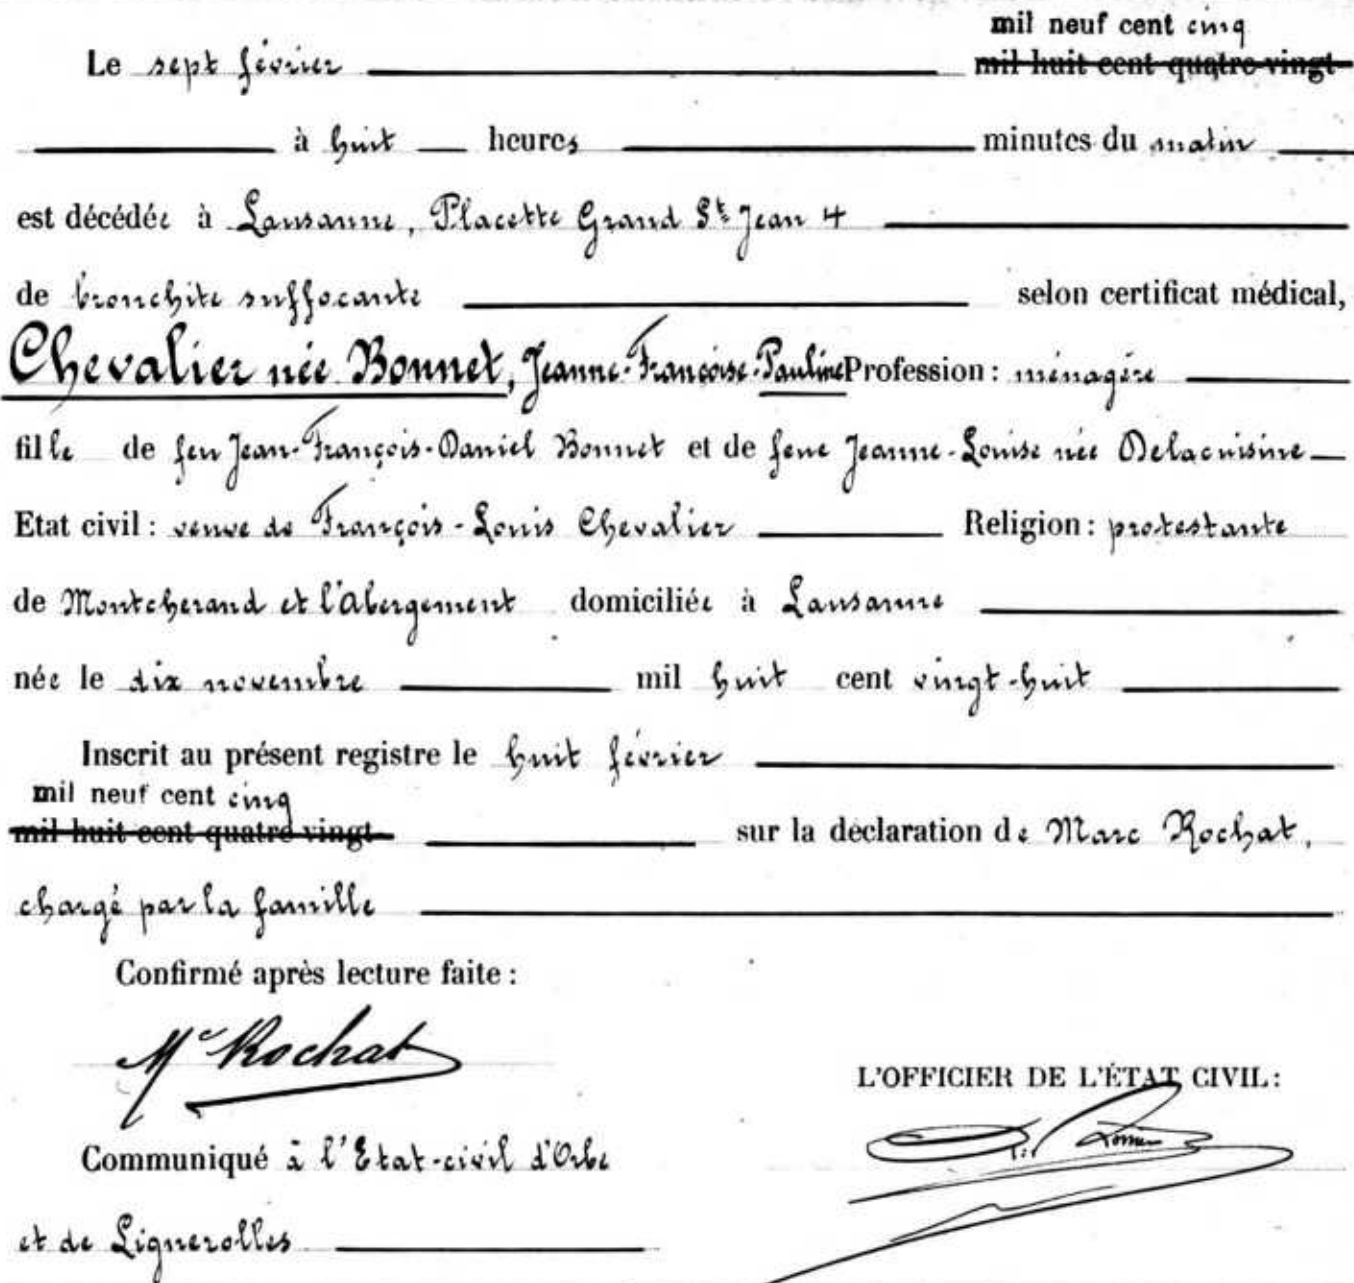 mil neuf cent cinq
Le sept février mil huit cent quatre-vingt
à huit heures minutes du matin
est décédée à Lausanne, Placette Grand St Jean 4
de bronchite suffocante selon certificat médical,
Chevalier née Bonnet, Jeanne-Françoise-Pauline Profession : ménagère
fille de feu Jean-François-Daniel Bonnet et de feue Jeanne-Louise née Delacuisine
Etat civil : veuve de François-Louis Chevalier Religion : protestante
de Montcherand et l'Abergement domiciliée à Lausanne
née le dix novembre mil huit cent vingt-huit
Inscrit au présent registre le huit février
mil neuf cent cinq
mil huit cent quatre vingt sur la déclaration de Marc Rochat,
chargé par la famille
Confirmé après lecture faite :
Mc Rochat
L'OFFICIER DE L'ÉTAT CIVIL :
Communiqué à l'Etat-civil d'Orbe
et de Lignerolles